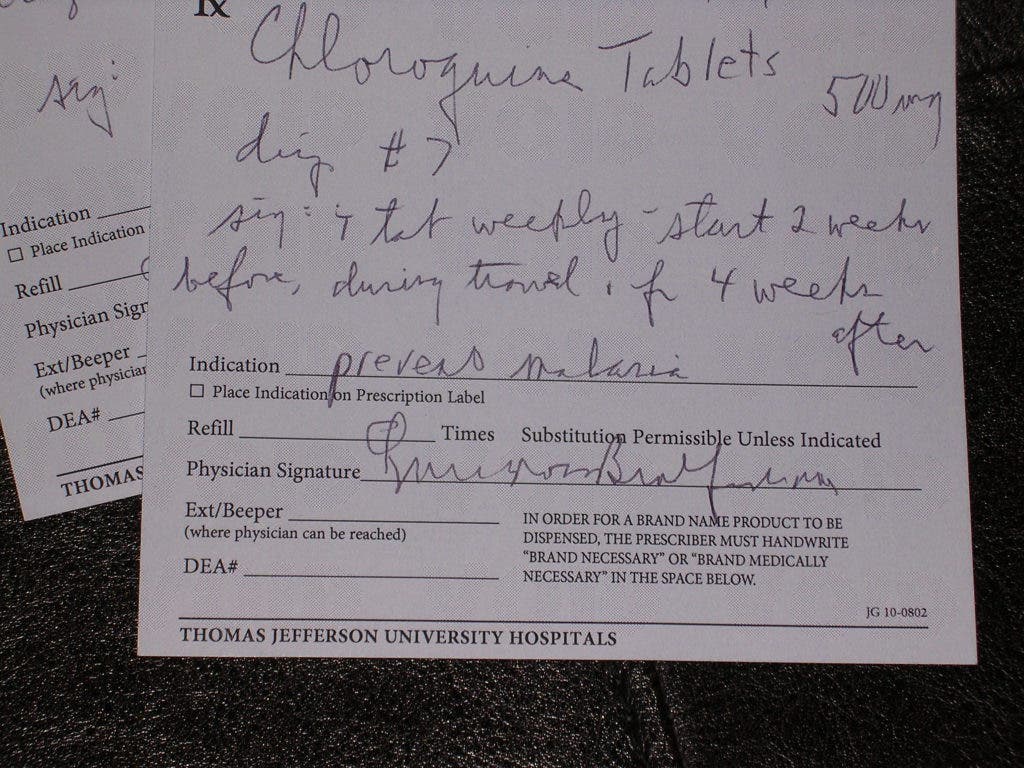 Rx
Chloroquine Tablets
500 mg
disp # 7
sig: † tab weekly - start 2 weeks
before, during travel, & for 4 weeks
after
Indication prevent malaria
☐ Place Indication on Prescription Label
Refill 0 Times Substitution Permissible Unless Indicated
Physician Signature
Ext/Beeper
(where physician can be reached)
DEA#
IN ORDER FOR A BRAND NAME PRODUCT TO BE
DISPENSED, THE PRESCRIBER MUST HANDWRITE
"BRAND NECESSARY" OR "BRAND MEDICALLY
NECESSARY" IN THE SPACE BELOW.
JG 10-0802
THOMAS JEFFERSON UNIVERSITY HOSPITALS
sig:
Indication
☐ Place Indication
Refill
Physician Sign
Ext/Beeper
(where physician
DEA#
THOMAS